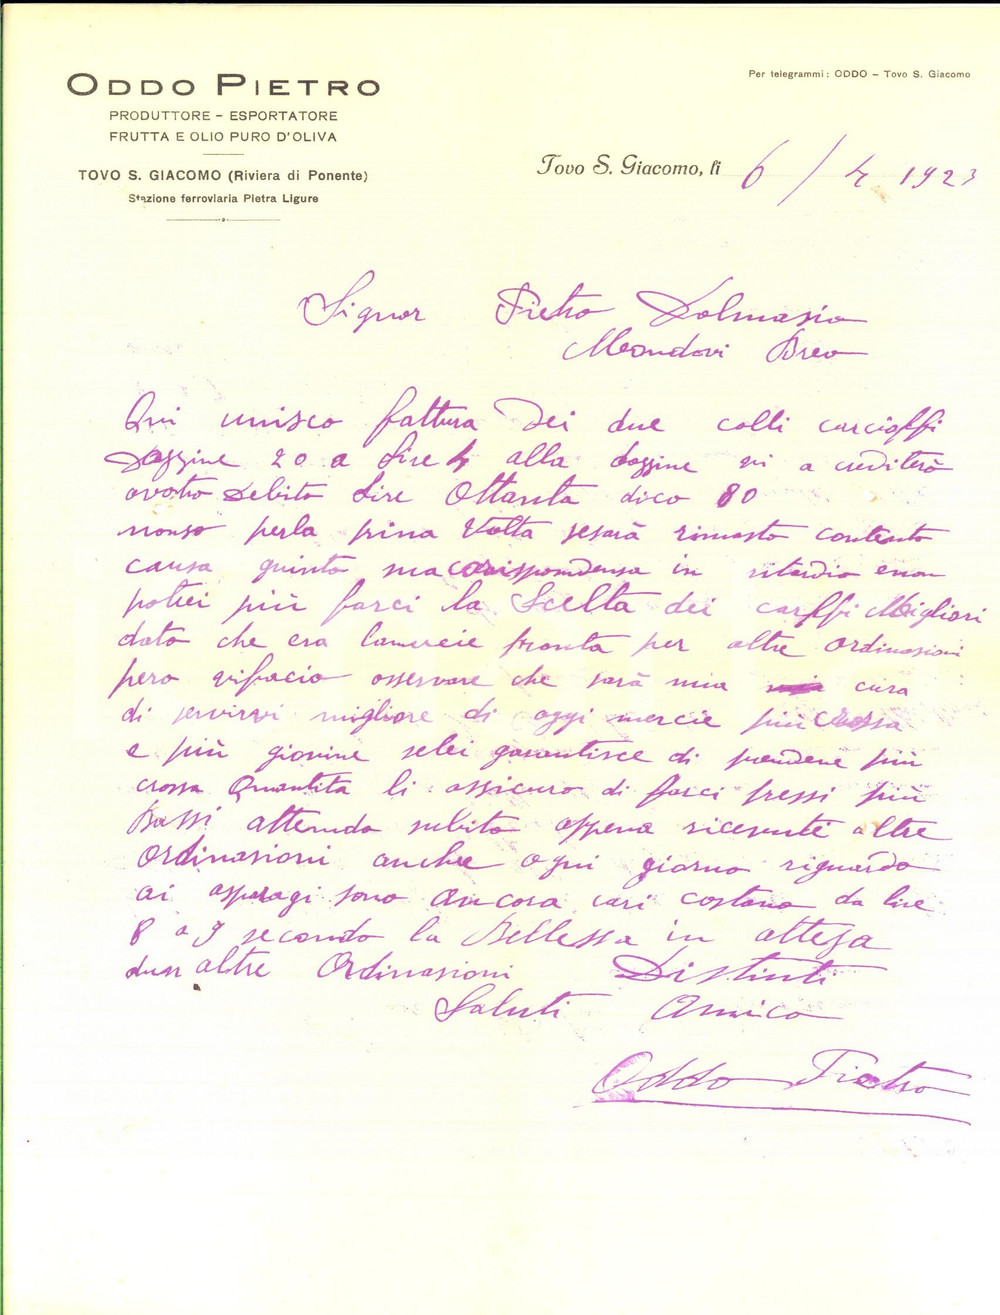 ODDO PIETRO
PRODUTTORE - ESPORTATORE
FRUTTA E OLIO PURO D'OLIVA
TOVO S. GIACOMO (Riviera di Ponente)
Stazione ferroviaria Pietra Ligure
Per telegrammi: ODDO - Tovo S. Giacomo
Tovo S. Giacomo, lì 6 / 4 1923
Signor Pietro Dolmasio
Mondovi Breo
Qui unisco fattura dei due colli carcioffi
Dozzine 20 a Lire 4 alla dozzine vi acrediterò
avostro debito Lire Ottanta dico 80
nonso perla prima Volta sesarà rimasto contento
causa giunto macorrispondensa in ritardio enon
potiei più farci la Scelta dei carffi Migliori
dato che era lamercie pronta per altre ordinasioni
pero vifacio osservare che sarà mua cura
di servirvi migliore di oggi mercie più Crossa
e più giovine selei garantisce di prendene più
crossa Quantita li assicuro di farci pressi più
Bassi attendo subito appena ricevute altre
Ordinasioni anche ogni giorno riguardo
ai asparagi sono ancora cari costano da lire
8 a 9 secondo la Bellessa in attesa
altre Ordinasioni Distinti
Saluti Amico
Oddo Pietro